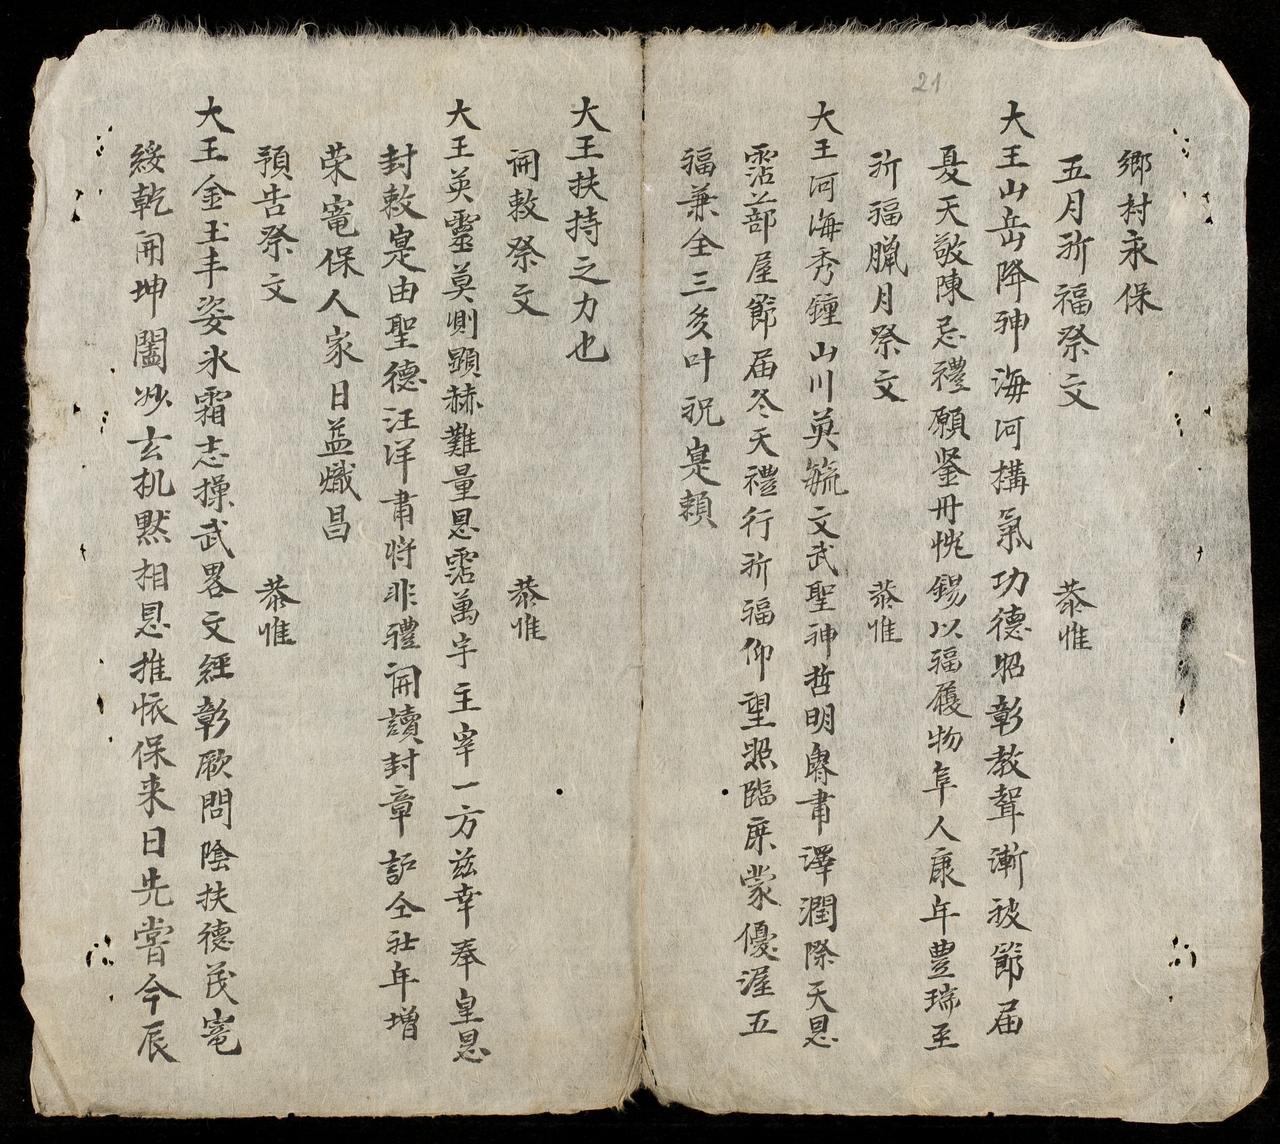 21
鄉村永保
五月祈福祭文 恭惟
大王山岳降神海河搆氣功德昭彰教聲漸被節届
夏天敬陳忌禮願鉴丹悃錫以福履物阜人康年豊瑞至
祈福臘月祭文 恭惟
大王河海秀鐘山川英毓文武聖神哲明睿肅澤潤際天恩
霑蔀屋節届冬天禮行祈福仰望照臨庶蒙優渥五
福兼全三多叶祝寔頼
大王扶持之力也
開敕祭文 恭惟
大王英靈莫測顕赫難量恩霑萬宇主宰一方兹幸奉皇恩
封敕寔由聖德汪洋肅将非禮開讀封章䕶仝社年增
荣寵保人家日益熾昌
預告祭文 恭惟
大王金玉丰姿氷霜志操武畧文經彰厥問陰扶德茂寵
綏乾開坤闔妙玄机黙相恩推恢保来日先嘗今辰